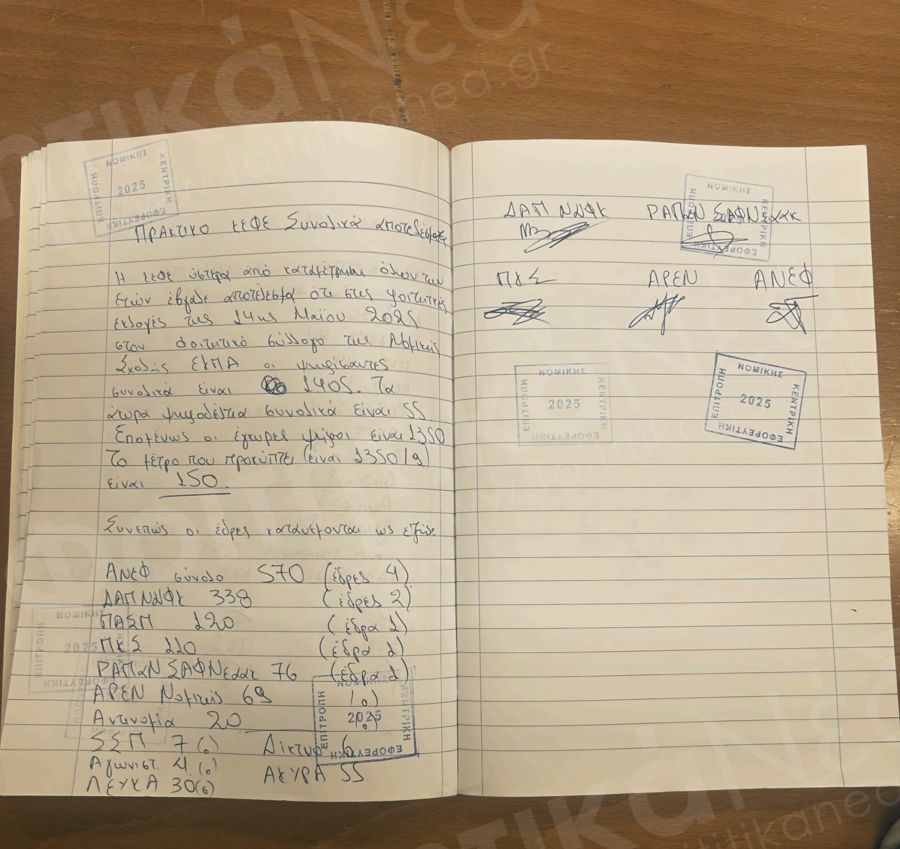 ΠΡΑΚΤΙΚΟ ΚΕΦΕ Συνολικά αποτελέσματα
Η ΚΕΦΕ ύστερα από καταμέτρηση όλων των
ετών έβγαλε αποτέλεσμα ότι στις φοιτητικές
εκλογές της 14ης Μαΐου 2025
στον φοιτητικό σύλλογο της Νομικής
Σχολής ΕΚΠΑ οι ψηφίσαντες
συνολικά είναι 1405. Τα
άκυρα ψηφοδέλτια συνολικά είναι 55
Επομένως οι έγκυρες ψήφοι είναι 1350
Το μέτρο που προκύπτει (είναι 1350/9)
είναι 150.
Συνεπώς οι έδρες κατανέμονται ως εξής:
ΑΝΕΦ σύνολο 570 (έδρες 4)
ΔΑΠ ΝΔΦΚ 338 (έδρες 2)
ΠΑΣΠ 120 (έδρα 1)
ΠΚΣ 110 (έδρα 1)
ΡΑΠαΝ ΣΑΦΝ εαακ 76 (έδρα 1)
ΑΡΕΝ Νομικής 69 (0)
Αντινομία 20 (0)
ΣΣΠ 7 (0) Δίκτυο 6
Αγωνιστ. 4 (0) ΑΚΥΡΑ 55
ΛΕΥΚΑ 30 (0)
ΔΑΠ ΝΔΦΚ ΡΑΠαΝ ΣΑΦΝ εαακ
ΠΚΣ ΑΡΕΝ ΑΝΕΦ
ΚΕΝΤΡΙΚΗ ΕΦΟΡΕΥΤΙΚΗ ΕΠΙΤΡΟΠΗ ΝΟΜΙΚΗΣ
2025
ΚΕΝΤΡΙΚΗ ΕΦΟΡΕΥΤΙΚΗ ΕΠΙΤΡΟΠΗ ΝΟΜΙΚΗΣ
2025
ΚΕΝΤΡΙΚΗ ΕΦΟΡΕΥΤΙΚΗ ΕΠΙΤΡΟΠΗ ΝΟΜΙΚΗΣ
2025
ΚΕΝΤΡΙΚΗ ΕΦΟΡΕΥΤΙΚΗ ΕΠΙΤΡΟΠΗ
2025
φοιτητικάΝέα
www.foititikanea.gr